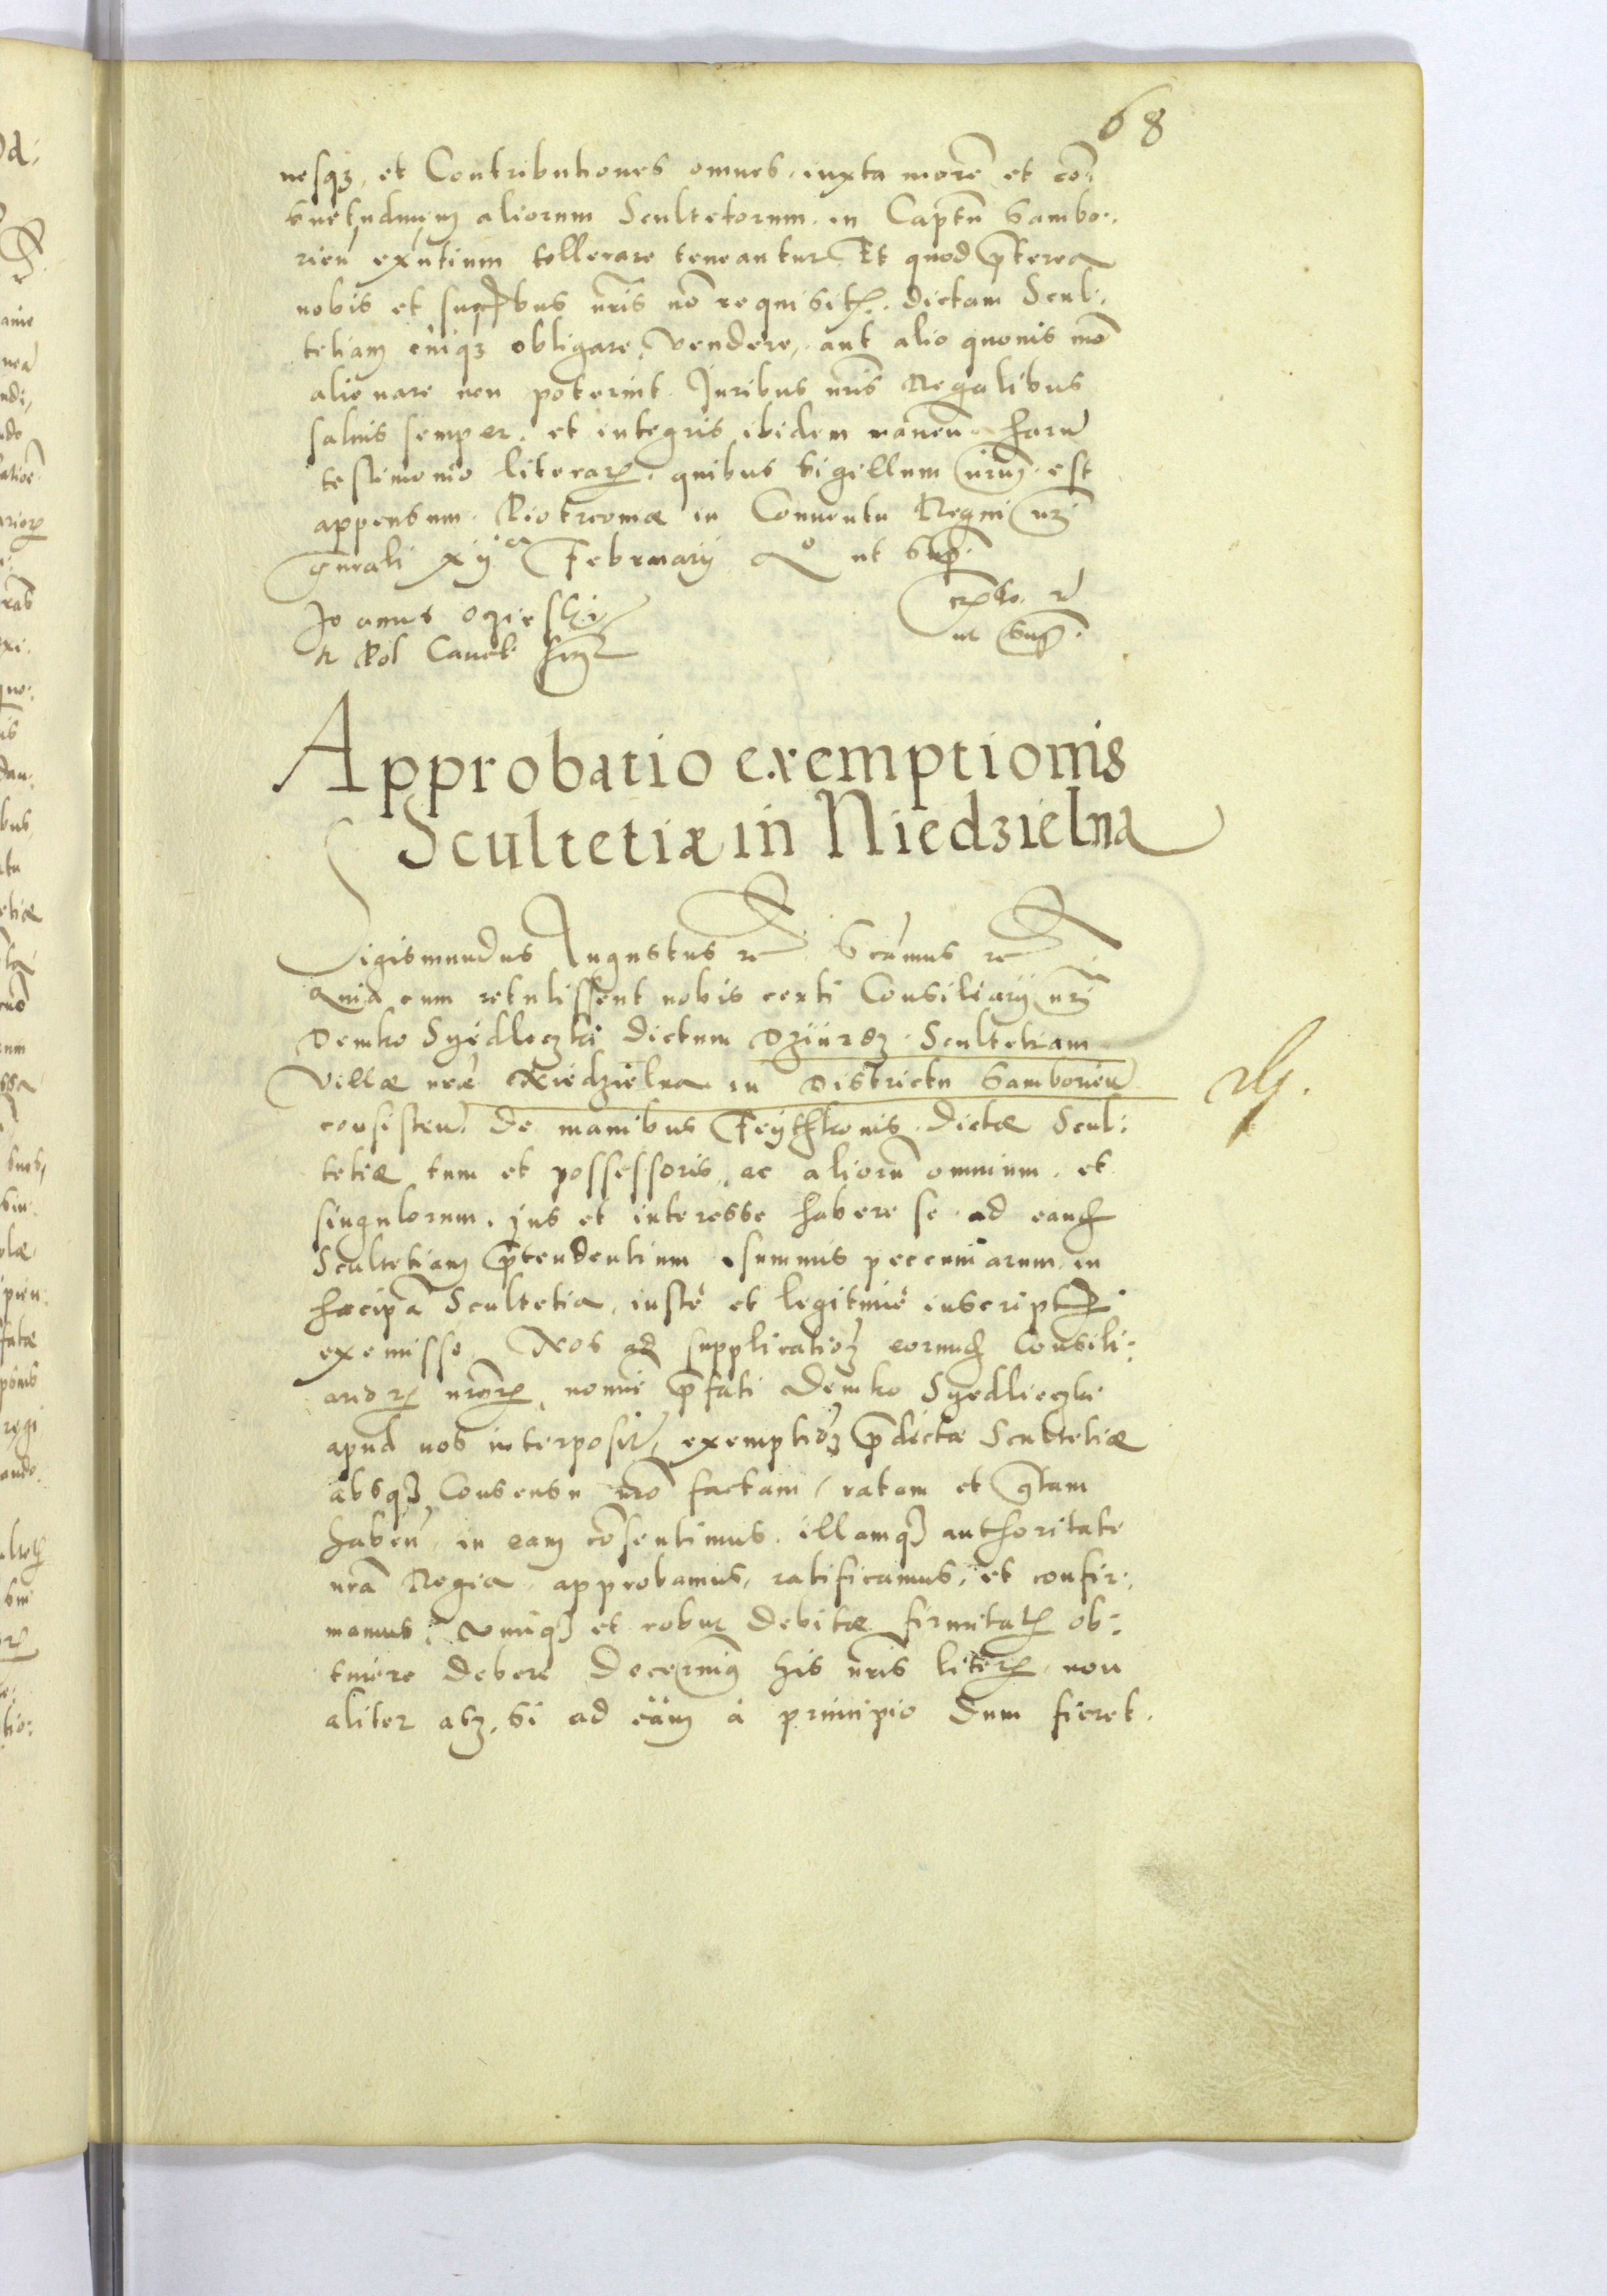 68
nesq3 et Contributiones omnes iuxta morē et cō:
suetudinem aliorum Scultetorum in Captū Sambo:
rien̄ exn̄tium tollerare teneantur Et quod p̄terea
nobis et succ̄bus nr̄is nō requisitis dictam Scul:
tetiam cuiq3 obligare, vendere, aut alio quouis mō
alienare non poterint Juribus nr̄is Regalibus
saluis semper, et integris ibidem manen̄ harū
testimonio literarꝝ quibus Sigillum nr̄um est
appensum Piotrcouiæ in Conuentu Regni nr̄i
gn̄rali xij ca Februarij Ao ut supᵃ
Joannes Ocieski
R Pol Cancel:
ut Supᵃ
Approbatio exemptionis
Scultetiæ in Niedzielna
Sigismundus Augustus Scimus
Quia cum retulissent nobis certi Consiliarij nr̄i
Demko Syedleczki dictum Dziurdz Scultetiam
Villæ nr̄æ Niedzielna in Districtu Samborien̄
consisten̄ de manibus Feythkonis dictæ Scul:
tetiæ tum et possessoris, ac aliorū omnium et
singulorum, jus et interesse habere se ad eand
Scultetiam p̄tendentium summis peccuniarum in
hac ipa Scultetia, iustè et legitimè inscriptꝭ
exemisse Nos ad supplicatiōm eorund Consili:
ariorꝝ nr̄orꝝ, nomine p̄fati Demko Syedlieczki
apud nos interposit, exemptiōm p̄dictæ Scultetiæ
absq3 Consensu nr̄o factam, ratam et gr̄tam
haben̄, in eam cōsentimus, illamq3 authoritate
nr̄a Regia, approbamus, ratificamus, et confir:
mamus, vimq3 et robur debitæ firmitatꝭ ob:
tinere debere decernim9 his nr̄is literꝭ, non
aliter at3 si ad eam à principio dum fieret